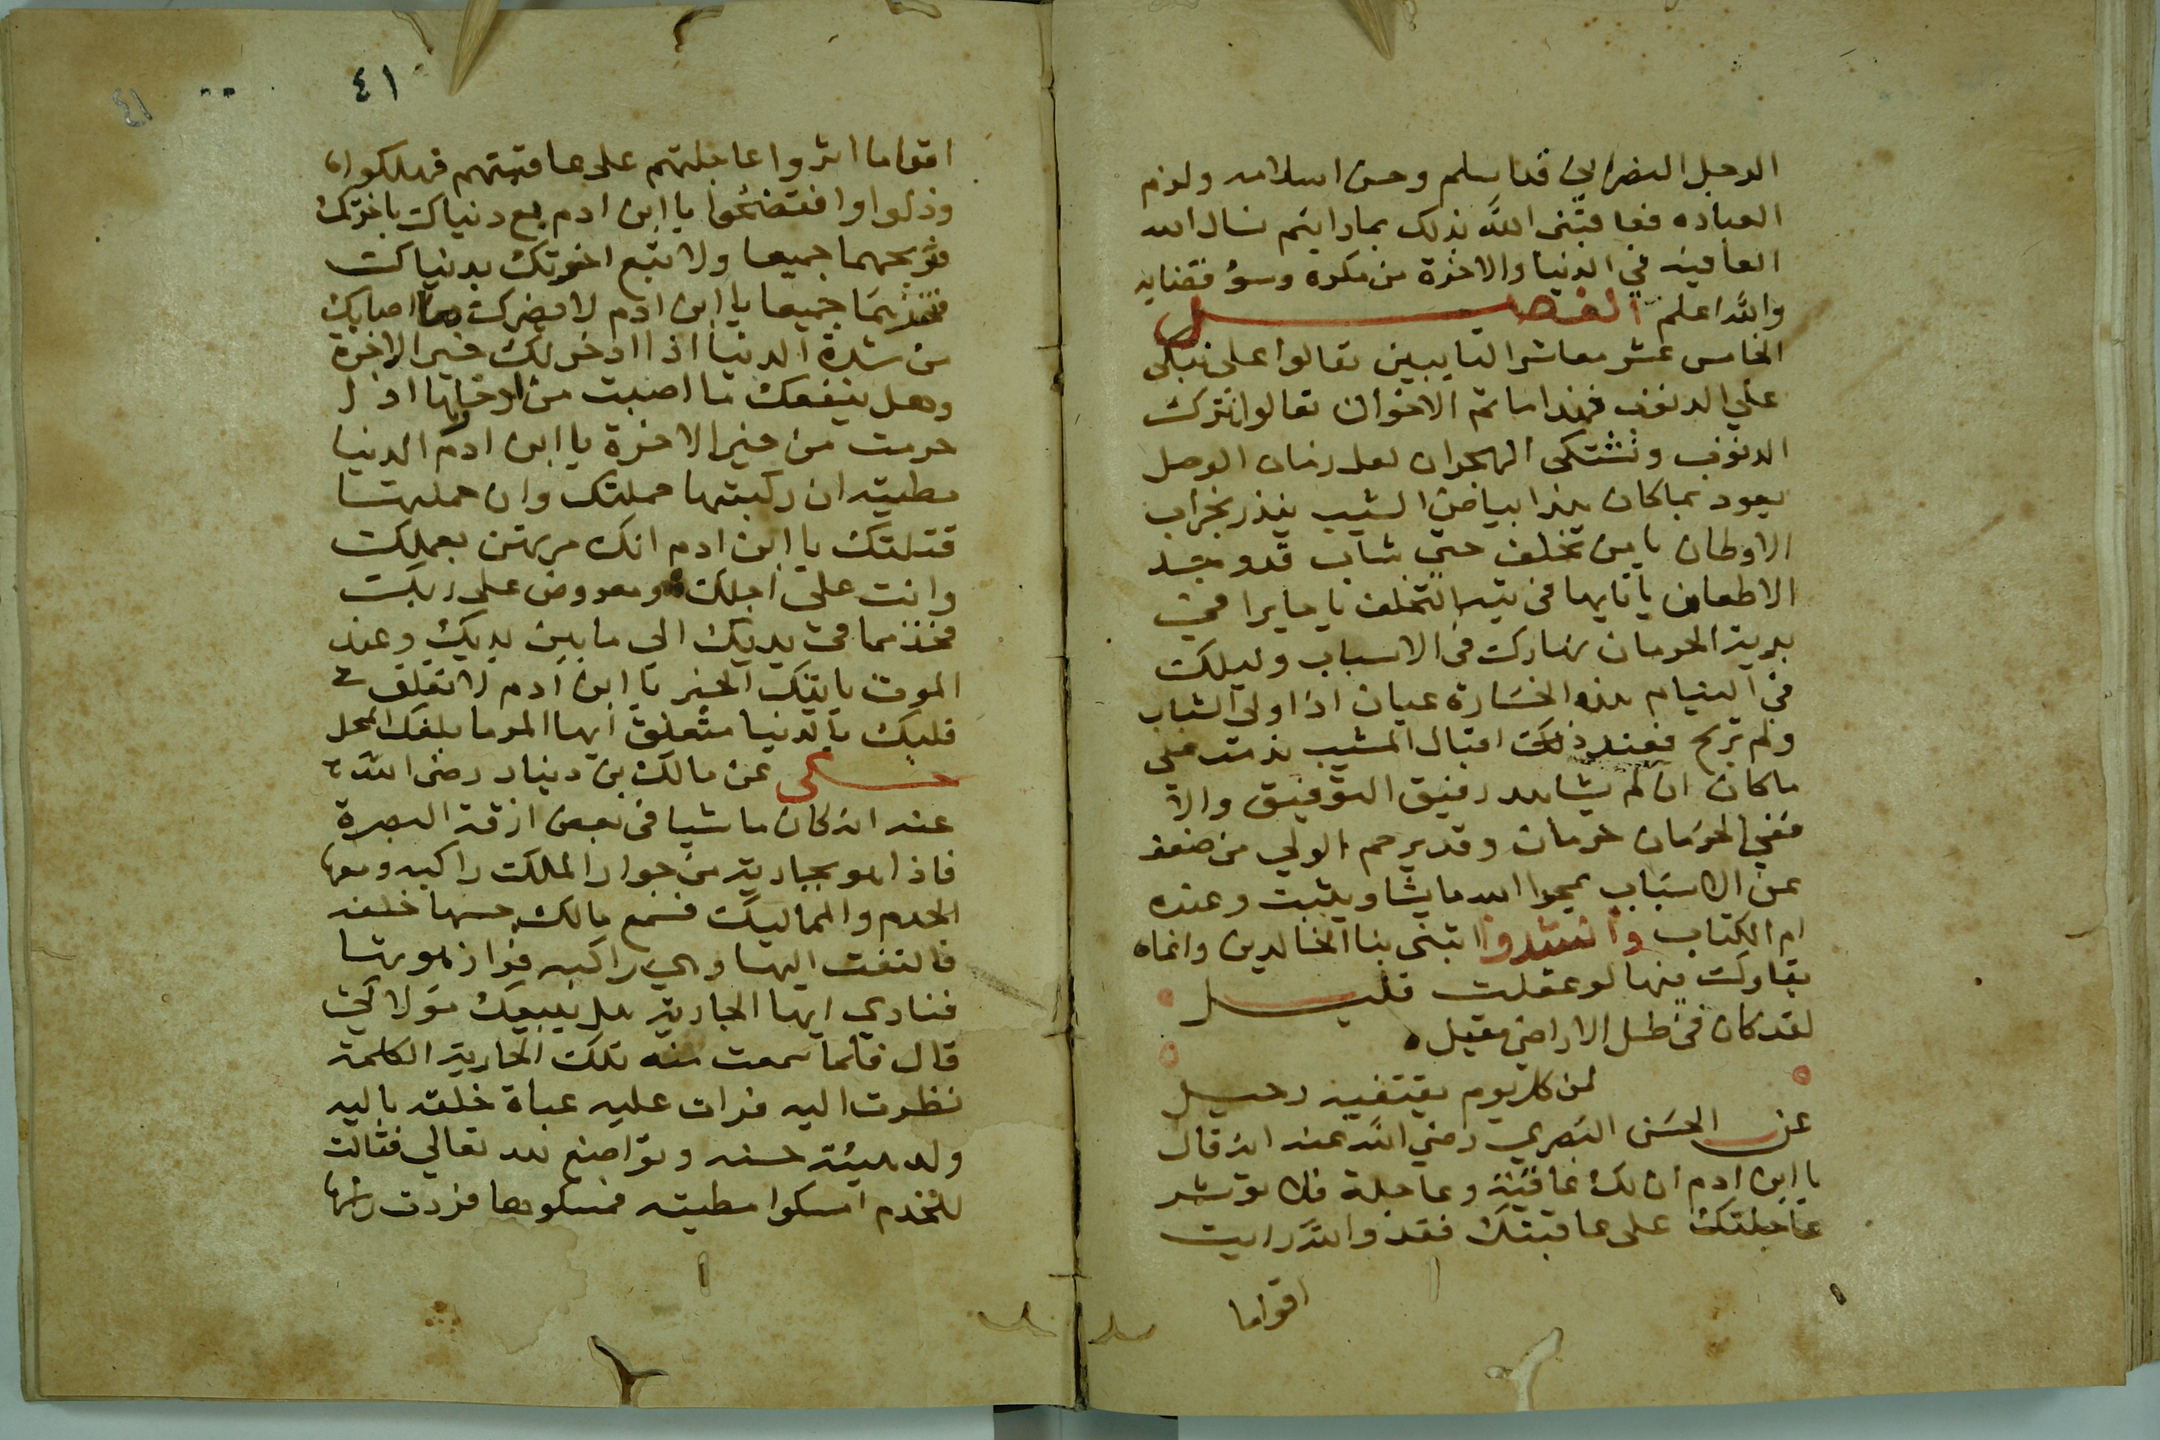 الرجل النصراني قد اسلم وحسن اسلامه ولزم
العباده فعاقبني الله بذلك بما رايتم نسال الله
العافيه في الدنيا والاخرة من مكره وسوء قضايه
والله اعلم الفصل
الخامس عشر معاشر التايبين تعالوا على نبكي
علي الذنوب فهذا ماتم الاخوان تعالوا نترك
الذنوب ونشتكى الهجران لعل زمان الوصل
يعود بما كان هذا بياض الشيب ينذر بخراب
الاوطان يا من تخلف حتي شاب قد وجد
الاطعان يا تايها في تيه التخلف يا حايرا في
برية الحرمان نهارك في الاسباب وليلك
في النيام هذه الخسارة عيان اذا ولي الشباب
ولم تربح فعند ذلك اقبال المشيب ندمت على
ما كان ان لم يشاهد رفيق التوفيق والا
ففي الحرمان حرمان وقد يرحم الولي من ضعف
عن الاسباب يمحوا الله ما يشا ويثبت وعنده
ام الكتاب وانشدوا اتبنى بنا الخالدين وانما
بقاوك فيها لو عقلت قليل
لقد كان في ظل الاراضي مقيل
لمن كل يوم يقتفيه رحيل
عن الحسن البصري رضي الله عنه انه قال
يا ابن ادم ان لك عاقبة وعاجلة فلا توثر
عاجلتك على عاقبتك فقد والله رايت
اقواما
٤١
٤١
اقواما اثروا عاجلتهم على عاقبتهم فهلكوا
وذلوا وافتضحوا يا ابن ادم بع دنياك باخرتك
فتربحهما جميعا ولا تبع اخرتك بدنياك
فتخسرهما جميعا يا ابن ادم لا يضرك ما اصابك
من شدة الدنيا اذا ادخر لك خير الاخرة
وهل ينفعك ما اصبت من ادخالها اذا
حرمت من خير الاخرة يا ابن ادم الدنيا
مطيته ان ركبتها حملتك وان حملتها
قتلتك يا ابن ادم انك مرتهن بعملك
وانت على اجلك ومعروض على ربك
فخذ مما في يديك الى ما بين يديك وعند
الموت ياتيك الخبر يا ابن ادم لا تعلق
قلبك بالدنيا متعلق ايها المر ما بلغك المحل
حكي عن مالك بن دينار رضى الله
عنه انه كان ماشيا فى بعض ازقة البصرة
فاذا هو بجارية من جوار الملك راكبه ومعها
الخدم والمماليك فسمع مالك حسها خلفه
فالتفت اليها وهي راكبه فراز هوتها
فنادي ايها الجارية هل يبيعك مولاكي
قال فلما سمعت منه تلك الجارية الكلمة
نظرت اليه فرات عليه عباة خلقه باليه
وله هيئة حسنه وتواضع لله تعالي فقالت
للخدم امسكوا مطيته فمسكوها فردت راسها